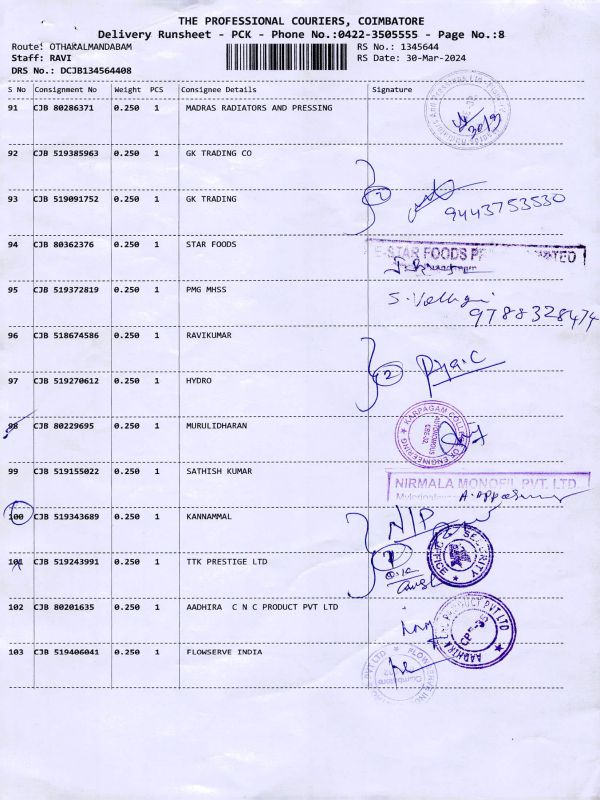 THE PROFESSIONAL COURIERS, COIMBATORE
Delivery Runsheet - PCK - Phone No.:0422-3505555 - Page No.:8
Route: OTHAKALMANDABAM RS No.: 1345644
Staff: RAVI RS Date: 30-Mar-2024
DRS No.: DCJB134564408
S No Consignment No Weight PCS Consignee Details Signature
91 CJB 80286371 0.250 1 MADRAS RADIATORS AND PRESSING
92 CJB 519385963 0.250 1 GK TRADING CO
93 CJB 519091752 0.250 1 GK TRADING 2
9443753530
94 CJB 80362376 0.250 1 STAR FOODS E-STAR FOODS
95 CJB 519372819 0.250 1 PMG MHSS
9788328474
96 CJB 518674586 0.250 1 RAVIKUMAR
97 CJB 519270612 0.250 1 HYDRO 2
98 CJB 80229695 0.250 1 MURULIDHARAN KARPAGAM COLLEGE OF ENGINEERING AUTONOMOUS
99 CJB 519155022 0.250 1 SATHISH KUMAR NIRMALA MONOFIL PVT. LTD.
100 CJB 519343689 0.250 1 KANNAMMAL N/P
101 CJB 519243991 0.250 1 TTK PRESTIGE LTD SECURITY OFFICE
102 CJB 80201635 0.250 1 AADHIRA C N C PRODUCT PVT LTD
103 CJB 519406041 0.250 1 FLOWSERVE INDIA